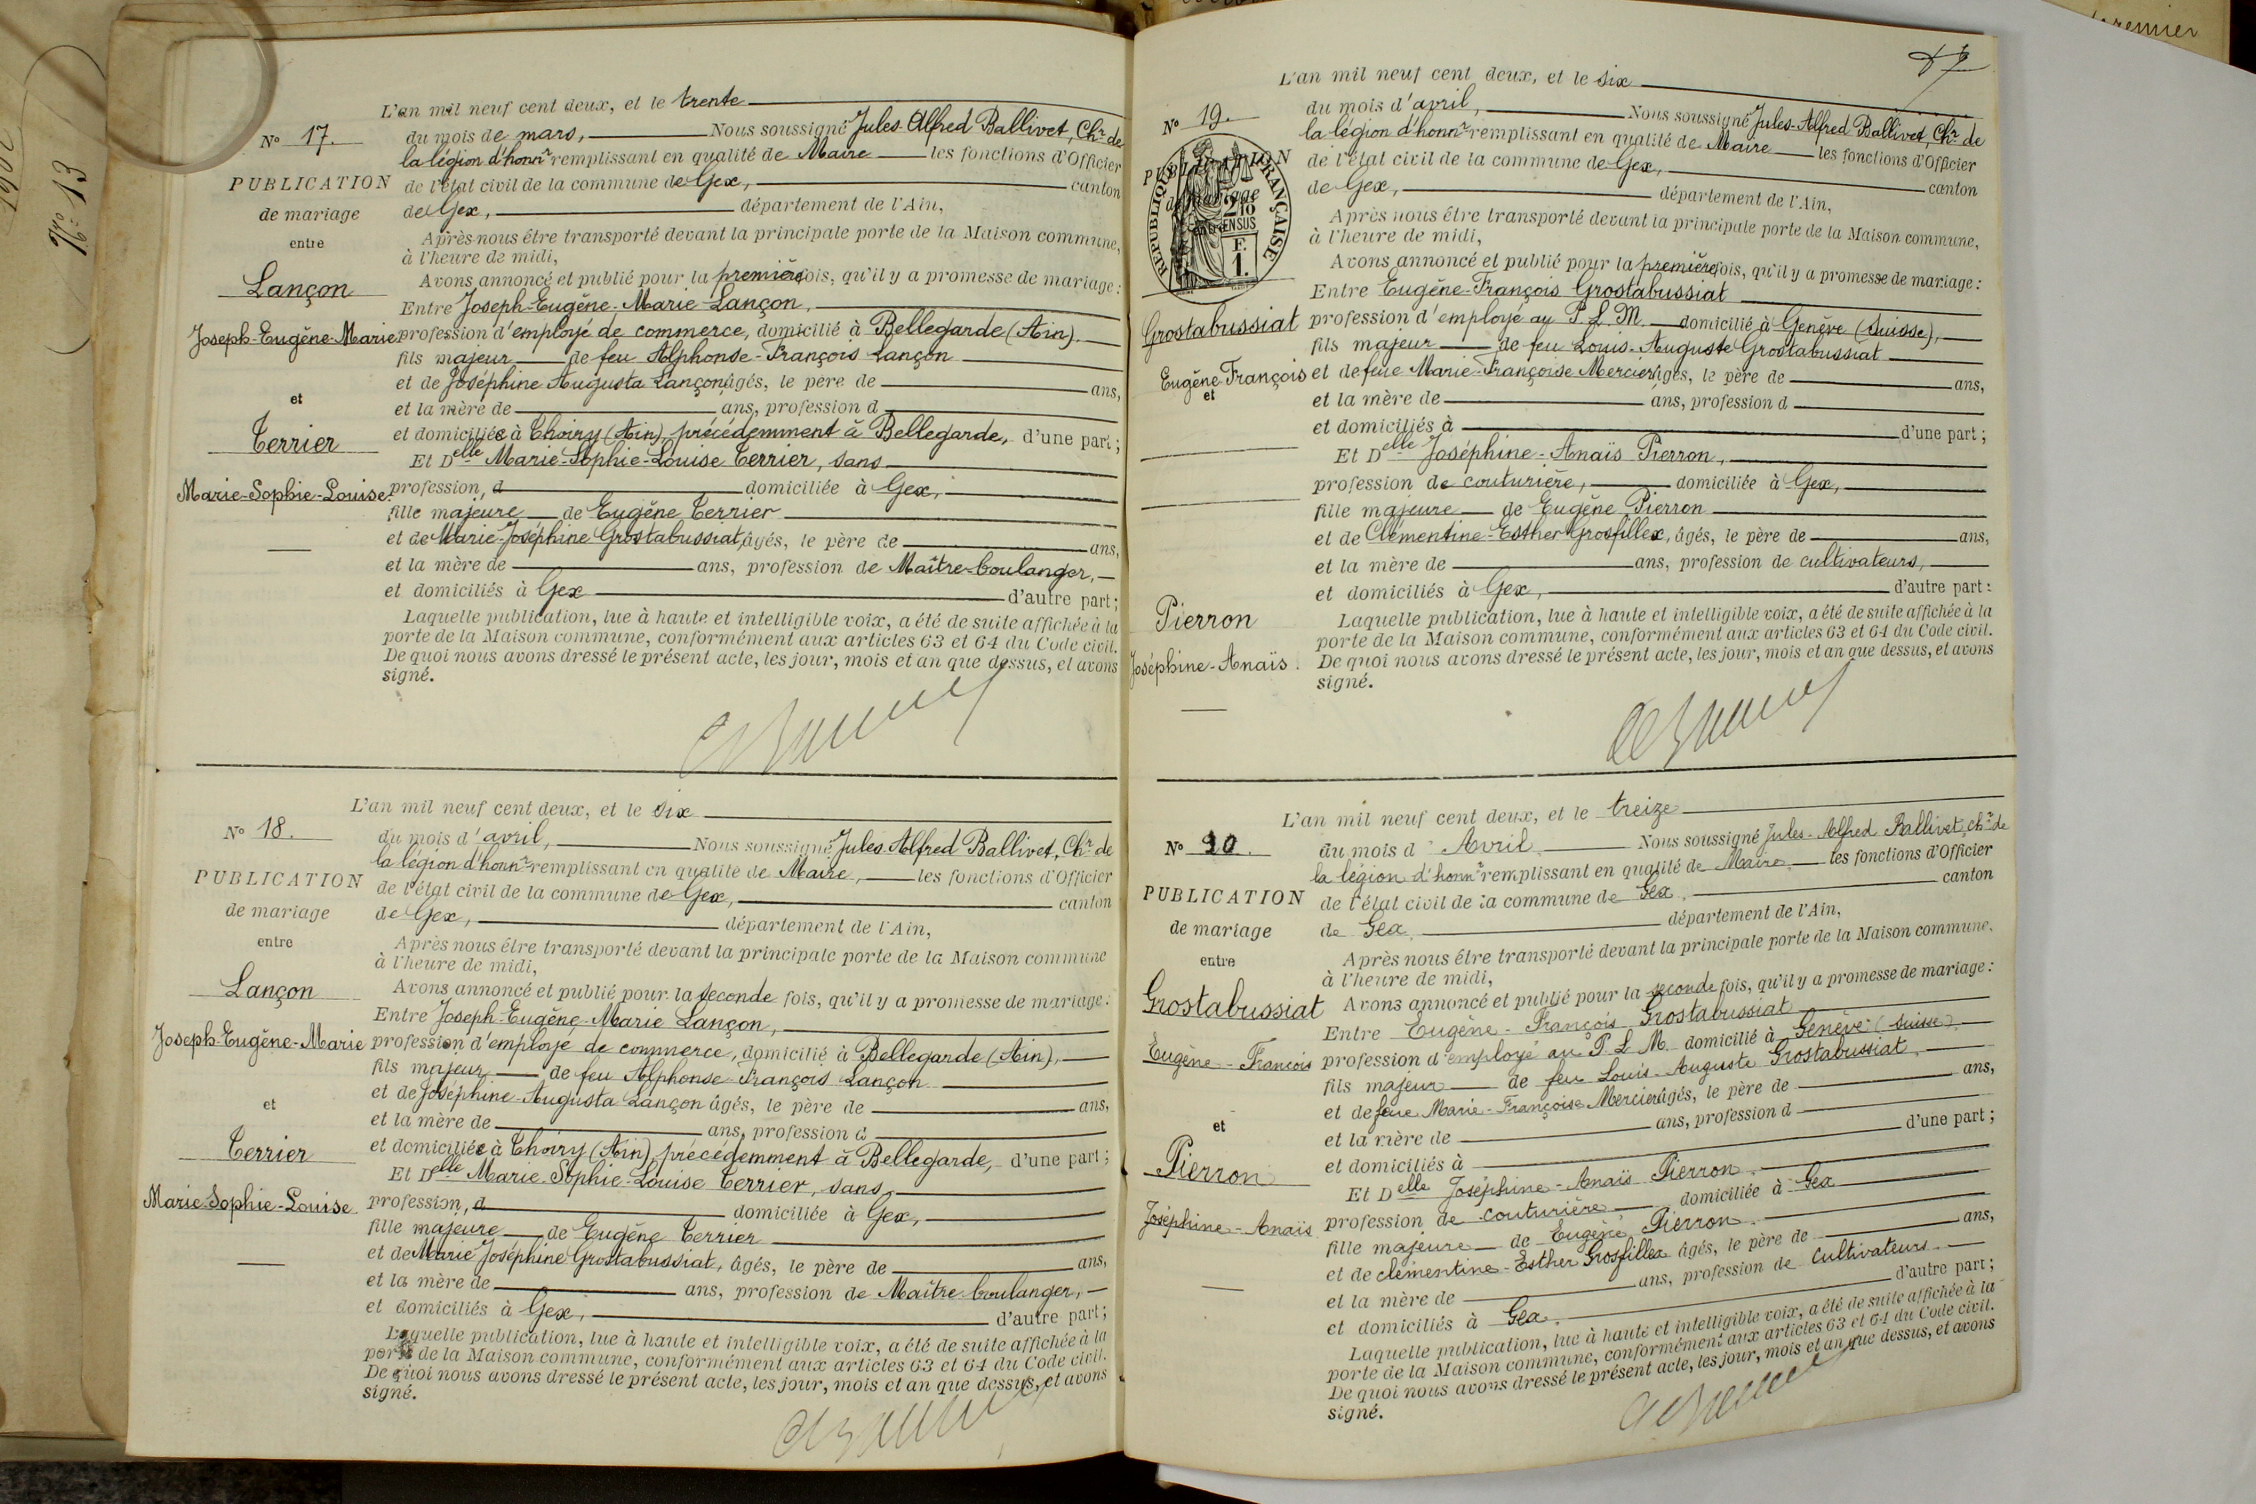 premier
1902
No: 13
L'an mil neuf cent deux, et le trente
No 17.
du mois de mars, Nous soussigné Jules-Alfred Ballivet, Chr de
la légion d'honnr remplissant en qualité de Maire les fonctions d'Officier
PUBLICATION
de l'état civil de la commune de Gex, canton
de mariage
de Gex, département de l'Ain,
entre
Après nous être transporté devant la principale porte de la Maison commune,
à l'heure de midi,
Avons annoncé et publié pour la première fois, qu'il y a promesse de mariage:
Lançon
Entre Joseph-Eugène-Marie Lançon,
Joseph-Eugène-Marie
profession d'employé de commerce, domicilié à Bellegarde (Ain).
fils majeur de feu Alphonse-François Lançon
et de Joséphine Augusta Lançon, âgés, le père de ans,
et
et la mère de ans, profession d
et domiciliée à Thoiry (Ain), précédemment à Bellegarde, d'une part;
Terrier
Et Delle Marie-Sophie-Louise Terrier, sans
Marie-Sophie-Louise.
profession, d domiciliée à Gex,
fille majeure de Eugène Terrier
et de Marie-Joséphine Grostabussiat, âgés, le père de ans,
et la mère de ans, profession de Maître-boulanger,
et domiciliés à Gex d'autre part;
Laquelle publication, lue à haute et intelligible voix, a été de suite affichée à la
porte de la Maison commune, conformément aux articles 63 et 64 du Code civil.
De quoi nous avons dressé le présent acte, les jour, mois et an que dessus, et avons
signé.
L'an mil neuf cent deux, et le six
No 18.
du mois d'avril, Nous soussigné Jules-Alfred Ballivet, Chr de
la légion d'honnr remplissant en qualité de Maire, les fonctions d'Officier
PUBLICATION
de l'état civil de la commune de Gex, canton
de mariage
de Gex, département de l'Ain,
entre
Après nous être transporté devant la principale porte de la Maison commune
à l'heure de midi,
Lançon
Avons annoncé et publié pour la seconde fois, qu'il y a promesse de mariage:
Entre Joseph-Eugène-Marie Lançon,
Joseph-Eugène-Marie
profession d'employé de commerce, domicilié à Bellegarde (Ain),
fils majeur de feu Alphonse François Lançon
et
et de Joséphine-Augusta Lançon âgés, le père de ans,
et la mère de ans, profession d
Terrier
et domiciliée à Thoiry (Ain), précédemment à Bellegarde, d'une part;
Et Delle Marie-Sophie-Louise Terrier, sans
Marie-Sophie-Louise
profession, d domiciliée à Gex,
fille majeure de Eugène Terrier
et de Marie Joséphine Grostabussiat, âgés, le père de ans,
et la mère de ans, profession de Maître-boulanger,
et domiciliés à Gex, d'autre part;
Laquelle publication, lue à haute et intelligible voix, a été de suite affichée à la
porte de la Maison commune, conformément aux articles 63 et 64 du Code civil.
De quoi nous avons dressé le présent acte, les jour, mois et an que dessus, et avons
signé.
L'an mil neuf cent deux, et le six
No 19.
du mois d'avril, Nous soussigné Jules-Alfred Ballivet, Chr de
la légion d'honnr remplissant en qualité de Maire les fonctions d'Officier
PUBLICATION
de l'état civil de la commune de Gex, canton
de mariage
de Gex, département de l'Ain,
entre
RÉPUBLIQUE FRANÇAISE
2/10
EN SUS
F.
1.
Après nous être transporté devant la principale porte de la Maison commune,
à l'heure de midi,
Avons annoncé et publié pour la première fois, qu'il y a promesse de mariage:
Entre Eugène-François Grostabussiat
Grostabussiat
profession d'employé au P. L. M. domicilié à Genève (Suisse),
fils majeur de feu Louis-Auguste Grostabussiat
Eugène François
et de feue Marie-Françoise Mercier âgés, le père de ans,
et
et la mère de ans, profession d
et domiciliés à d'une part;
Et Delle Joséphine-Anaïs Pierron,
profession de couturière, domiciliée à Gex,
fille majeure de Eugène Pierron
et de Clémentine-Esther Grosfillex, âgés, le père de ans,
et la mère de ans, profession de cultivateurs,
et domiciliés à Gex, d'autre part:
Pierron
Laquelle publication, lue à haute et intelligible voix, a été de suite affichée à la
porte de la Maison commune, conformément aux articles 63 et 64 du Code civil.
Joséphine-Anaïs.
De quoi nous avons dressé le présent acte, les jour, mois et an que dessus, et avons
signé.
L'an mil neuf cent deux, et le treize
No 20.
du mois d'Avril Nous soussigné Jules-Alfred Ballivet, chr de
la légion d'honnr remplissant en qualité de Maire les fonctions d'Officier
PUBLICATION
de l'état civil de la commune de Gex, canton
de mariage
de Gex, département de l'Ain,
entre
Après nous être transporté devant la principale porte de la Maison commune,
à l'heure de midi,
Grostabussiat
Avons annoncé et publié pour la seconde fois, qu'il y a promesse de mariage:
Entre Eugène-François Grostabussiat
Eugène-François
profession d'employé au P L M. domicilié à Genève (Suisse),
fils majeur de feu Louis-Auguste Grostabussiat,
et de feue Marie-Françoise Mercier âgés, le père de ans,
et
et la mère de ans, profession d
et domiciliés à d'une part;
Pierron
Et Delle Joséphine-Anaïs Pierron.
Joséphine-Anaïs
profession de couturière domiciliée à Gex
fille majeure de Eugène Pierron.
et de clémentine-Esther Grosfillex âgés, le père de ans,
et la mère de ans, profession de cultivateurs
et domiciliés à Gex. d'autre part;
Laquelle publication, lue à haute et intelligible voix, a été de suite affichée à la
porte de la Maison commune, conformément aux articles 63 et 64 du Code civil.
De quoi nous avons dressé le présent acte, les jour, mois et an que dessus, et avons
signé.